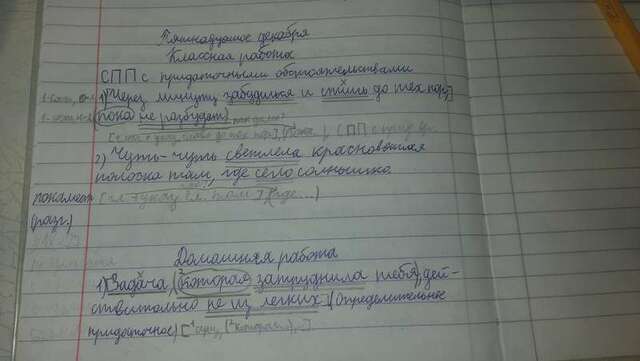 Пятнадцатое декабря
Классная работа
СПП с придаточными обстоятельствами
1) Через минуту забудешься и спишь до тех пор,
пока не разбудят.
2) Чуть-чуть светлела красноватая
полоска там, где село солнышко.
покамест
(разг.)
[ гл. + указ. сл. там ] (где...)
Домашняя работа
1) Задача, (которая затруднила тебя), дей-
ствительно не из легких. (Определительное
придаточное) [ сущ, (которая), ].